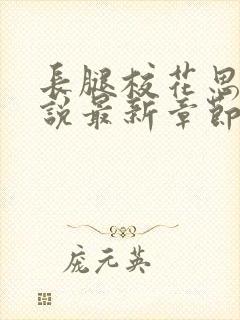 長腿校花思
說最新章節
庞元英